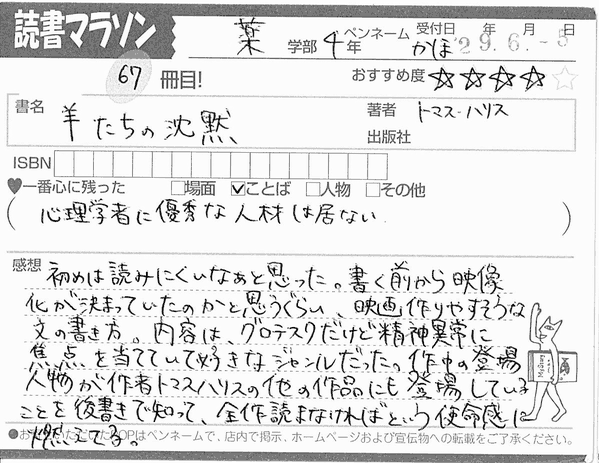 読書マラソン
薬 学部 4年 ペンネーム かほ 受付日 '29.6.-5 年 月 日
67 冊目! おすすめ度 ★★★★☆
書名 羊たちの沈黙
著者 トマス・ハリス
出版社
ISBN
♥一番心に残った □場面 ☑ことば □人物 □その他
(心理学者に優秀な人材は居ない)
感想 初めは読みにくいなぁと思った。書く前から映像
化が決まっていたのかと思うぐらい、映画作りやすそうな
文の書き方。内容は、グロテスクだけど精神異常に
焦点を当てていて好きなジャンルだった。作中の登場
人物が作者トマスハリスの他の作品にも登場している
ことを後書きで知って、全作読まなければという使命感に
燃えてる。
POPはペンネームで、店内で掲示、ホームページおよび宣伝物への転載をご了承ください。